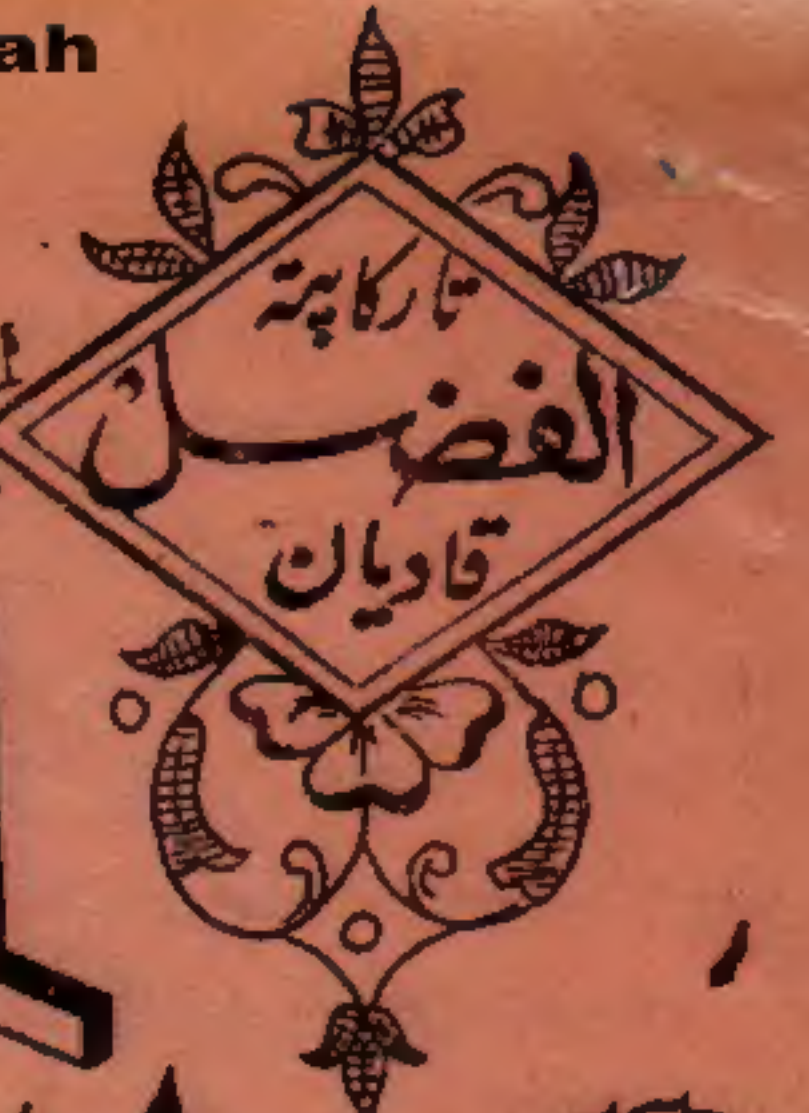 ah
تار کا پتہ
الفضل
قادیان